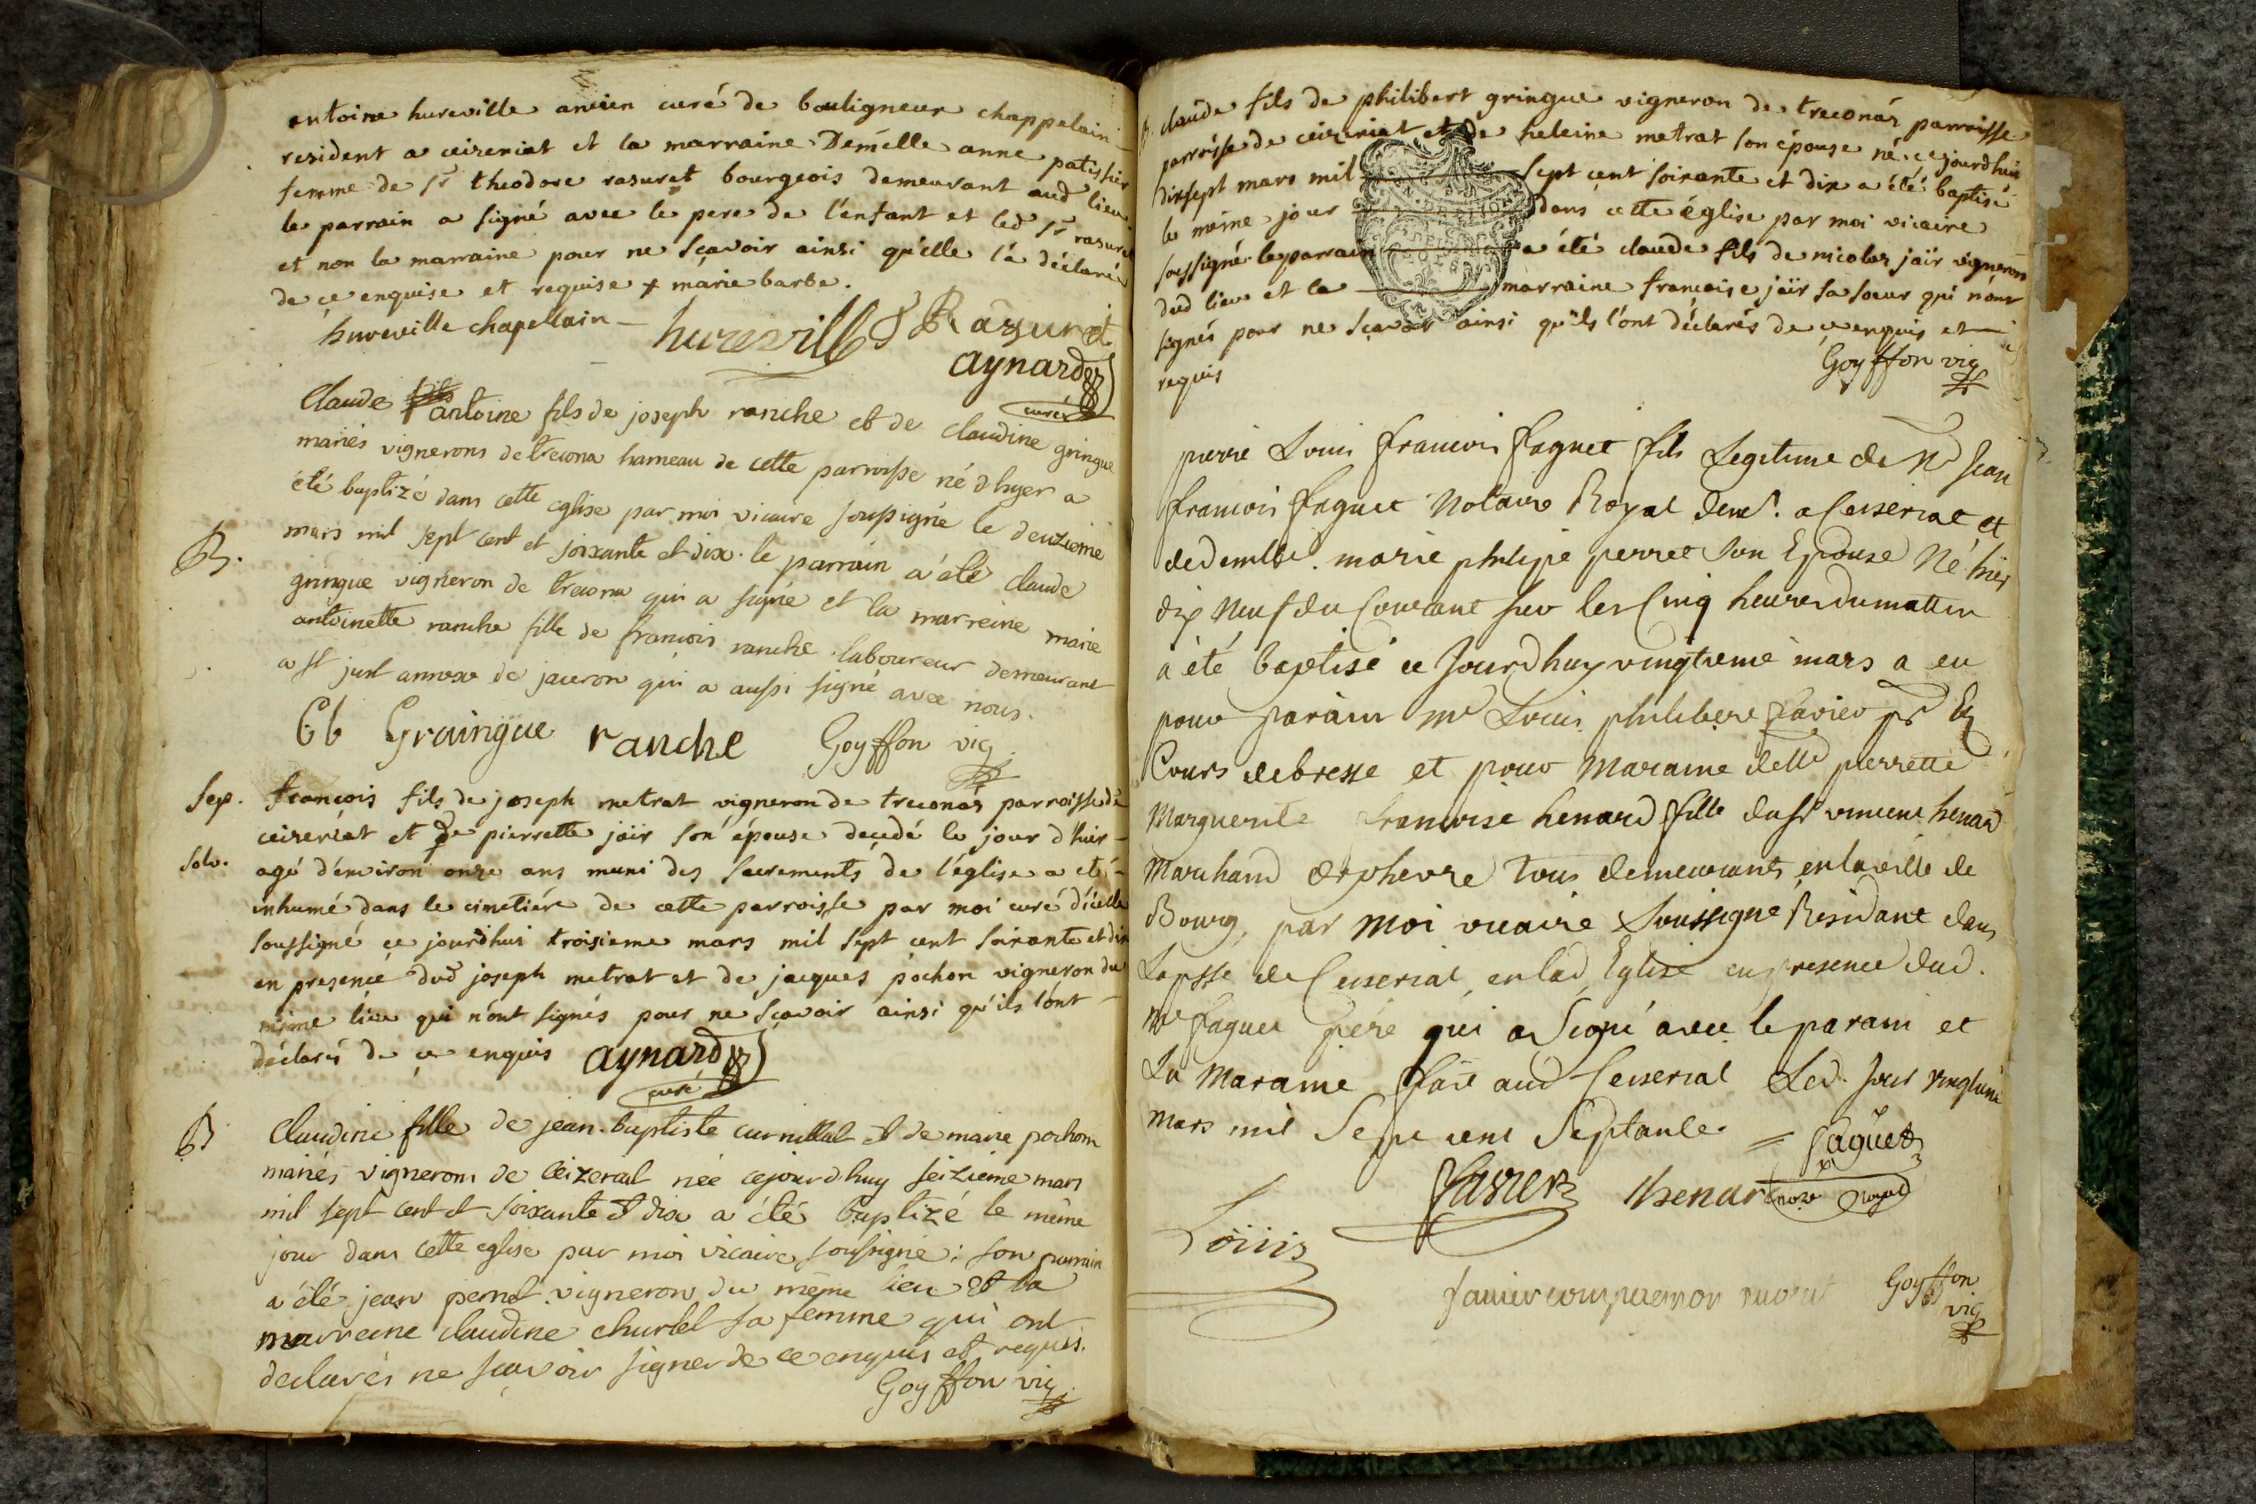 antoine hureville ancien curé de bouligneux chappelain
resident a ceizeriat et la marraine Demelle anne patissier
femme de sr theodore rasuret bourgeois demeurant aud lieu
le parrain a signé avec le pere de l'enfant et led sr rasuret
et non la marraine pour ne sçavoir ainsi qu'elle l'a déclaré
de ce enquise et requise + marie barbe.
hureville chapellain hureville Rasuret
aynard
curé
Claude antoine fils de joseph ranche et de claudine gringue
mariés vignerons de treconа hameau de cette parroisse né d'hyer a
été baptizé dans cette eglise par moi vicaire soussigné le deuzieme
B. mars mil sept cent et soixante et dix. le parrain a été claude
gringue vigneron de trecona qui a signé et la marreine marie
antoinette ranche fille de francois ranche laboureur demeurant
a st just annexe de jaceron qui a aussi signé avec nous.
Graingue ranche Goyffon vic
sep. francois fils de joseph metrat vigneron de treconas parroisse de
ceizeriat et de pierrette jaïr son épouse decedé le jour d'hier
solv. agé d'environ onze ans muni des sacrements de l'église a été
inhumé dans le cimetiére de cette parroisse par moi curé d'icelle
soussigné ce jourdhui troisieme mars mil sept cent soixante et dix
en presence dud joseph metrat et de jacques pochon vigneron du
même lieu qui n'ont signés pour ne sçavoir ainsi qu'ils l'ont
déclaré de ce enquis aynard
curé
B Claudine fille de jean-baptiste curnillat et de marie pochon
mariés vignerons de Ceizeriat née cejourd'huy seizieme mars
mil sept cent et soixante et dix a été baptizé le même
jour dans cette eglise par moi vicaire soussigné: son parrain
a été jean pernet vigneron du même lieu et la
marreine claudine churlet sa femme qui ont
declarés ne sçavoir signer de ce enquis et requis.
Goyffon vic
B. claude fils de philibert gringue vigneron de treconas parroisse
parroisse de ceizeriat et de heleine metrat son épouse né cejourdhui
dixsept mars mil sept cent soixante et dix a été baptisé
le même jour dans cette église par moi vicaire
soussigné le parrain a été claude fils de nicolas jaïr vigneron
dud lieu et la marraine francoise jaïr sa soeur qui n'ont
signés pour ne sçavoir ainsi qu'ils l'ont déclarés de ce enquis et
requis Goyffon vic
pierre Louis francois faguet fils Legitime de Me Jean
francois faguet Notaire Royal demt. a Ceiseriat et
de demlle. marie philipe perret son Epouse Né hier
dix Neuf du Courant sur les Cinq heures du matin
a été baptisé ce Jourdhuy vingtieme mars a eu
pour parain Me Louis philibert favier pr Es
Cours de bresse et pour Maraine delle pierrette
Marguerite francoise henard fille du sr vincent henard
Marchand orphevre tous demeurants en la ville de
Bourg, par Moi vicaire Soussigné Residant dans
La psse de Ceiseriat, en lad. Eglise en presence dud.
Me faguet pere qui a Signé avec le parain et
La Maraine fait aud Ceiseriat Led. Jour vingtieme
Mars mil Sept cent Septante. = faguet
favier henard nore Royal
Loüis
Goyffon
vic